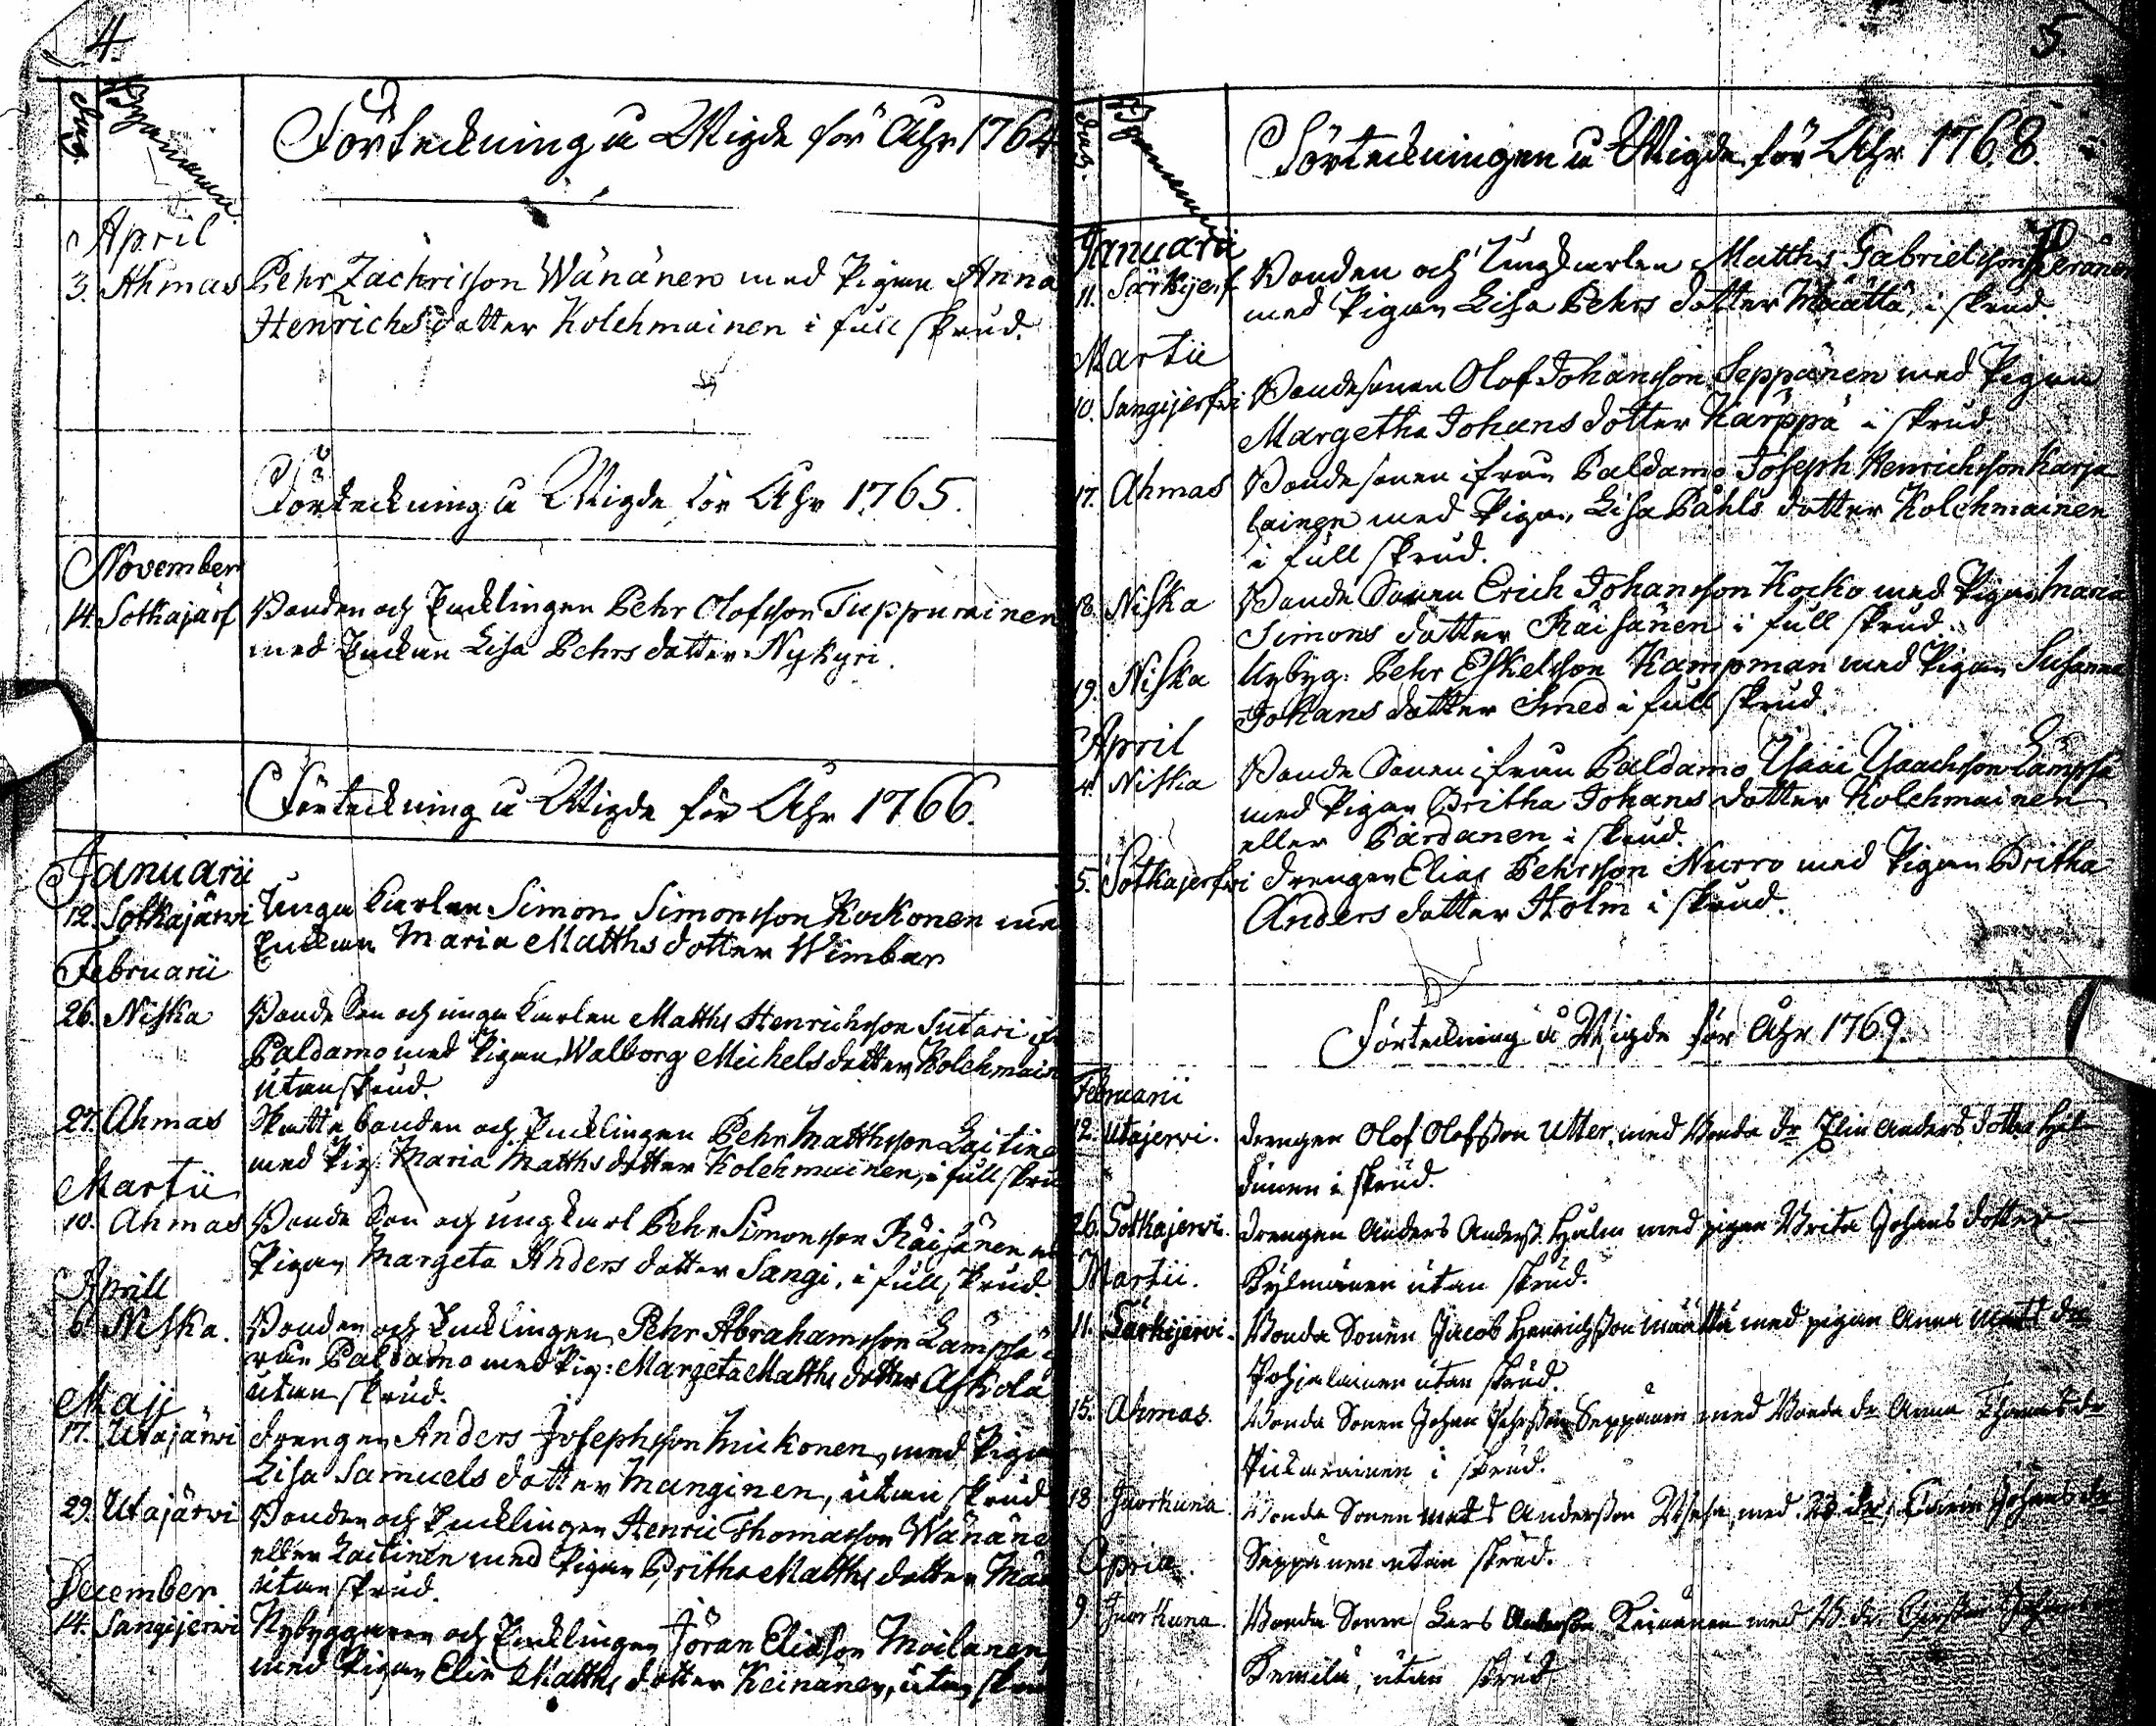 4.
Dag. Byarnamn.
Förteckning å Wigde för Åhr 1764
April
3. Ahmas Pehr Zachrisson Wänänen med Pigan Anna
Henrichs dotter Kolehmainen i full skrud.
Förteckning å Wigde för Åhr 1765.
November
14. Sotkajärf Bonden och Enklingen Pehr Olofsson Tuppurainen
med Enckan Lisa Pehrs dotter Nykyri.
Förteckning å Wigde för Åhr 1766.
Januarii
12. Sotkajärwi Unga Karlen Simon Simonsson Kockonen me
Enckan Maria Matths dotter Wimbar
Februarii
26. Niska Bonde Son och unga Karlen Matths Henrichsson Sutari
Paldamo med Pigan Walborg Michels dotter Kolehmain
utan skrud.
27. Ahmas Skatte bonden och Enklingen Pehr Matthsson Laitine
med Pig: Maria Matths dotter Kolehmainen, i full skru
Martii
10. Ahmas Bonde Son och ung Karl Pehr Simonsson Räisänen
Pigan Margeta Anders dotter Sangi, i full skrud.
Aprill
6. Niska. Bonden och Enklingen Pehr Abrahamsson Lämpsä
Paldamo med Pig: Margeta Matths dotter Askola
utan skrud.
Maji
17. Utajärwi Drengen Anders Josephsson Mickonen, med Pigan
Lisa Samuels dotter Manginen, utan skrud
29. Utajärwi Bonden och Enklingen Henric Thomasson Wänäne
eller Laitinen med Pigan Britha Matths dotter
utan skrud.
December
14. Sangijerwi Nybyggaren och Enklingen Jöran Eliasson Moilanen
med Pigan Elin Matths dotter Keinänen, utan skru
5.
Dag. Byarnamn
Förteckningen å Wigde för Åhr 1768.
Januarii
11. Särkijerf Bonden och Ungkarlen Matths Gabrielsson Heränen
med Pigan Lisa Pehrs dotter Määttä, i skrud.
Martii
10. Sangijerfwi Bondesonen Olof Johansson Seppänen med Pigan
Margetha Johans dotter Karppa i skrud
17. Ahmas Bondesonen ifrån Paldamo Joseph Henrichsson Karja
lainen med Pigan Lisa Påhls dotter Kolehmainen
i full skrud.
18. Niska Bonde Sonen Erich Johansson Kocko med Pigan Maria
Simons dotter Räisänen i full skrud.
19. Niska Nybyg: Pehr Eskelsson Kampman med Pigan Susanna
Johans dotter Smed i full skrud.
April
4. Niska Bonde Sonen ifrån Paldamo Isaac Isaachsson Lämpsä
med Pigan Britha Johans dotter Kolehmainen
eller Pärdänen i skrud.
5. Sotkajerfwi Drengen Elias Pehrsson Nurro med Pigan Britha
Anders dotter Holm i skrud.
Förteckning å Wigde för Åhr 1769.
Februarii
12. Utajerwi. Drengen Olof Olofsson Utter, med Bonde dr Elin Anders dotter
i skrud.
26. Sotkajerwi. Drengen Anders Anderss. Holm med pigan Brita Johans dotter
Martii. Kylmänen utan skrud.
11. Särkijerwi. Bonde Sonen Jacob Henrichsson Määttä med pigan Anna Matts dr
Pohjalainen utan skrud.
15. Ahmas. Bonde Sonen Johan Pehrsson Seppänen med Bonde dr Anna Thomas dr
Pickarainen i skrud.
18 Juorkuna. Bonde Sonen Matts Andersson Wesa, med B. dr, Carin Johans dr
Aprill. Seppänen utan skrud.
9 Juorkuna. Bonde Sonen Lars Andersson Keinänen med B. dr
utan skrud